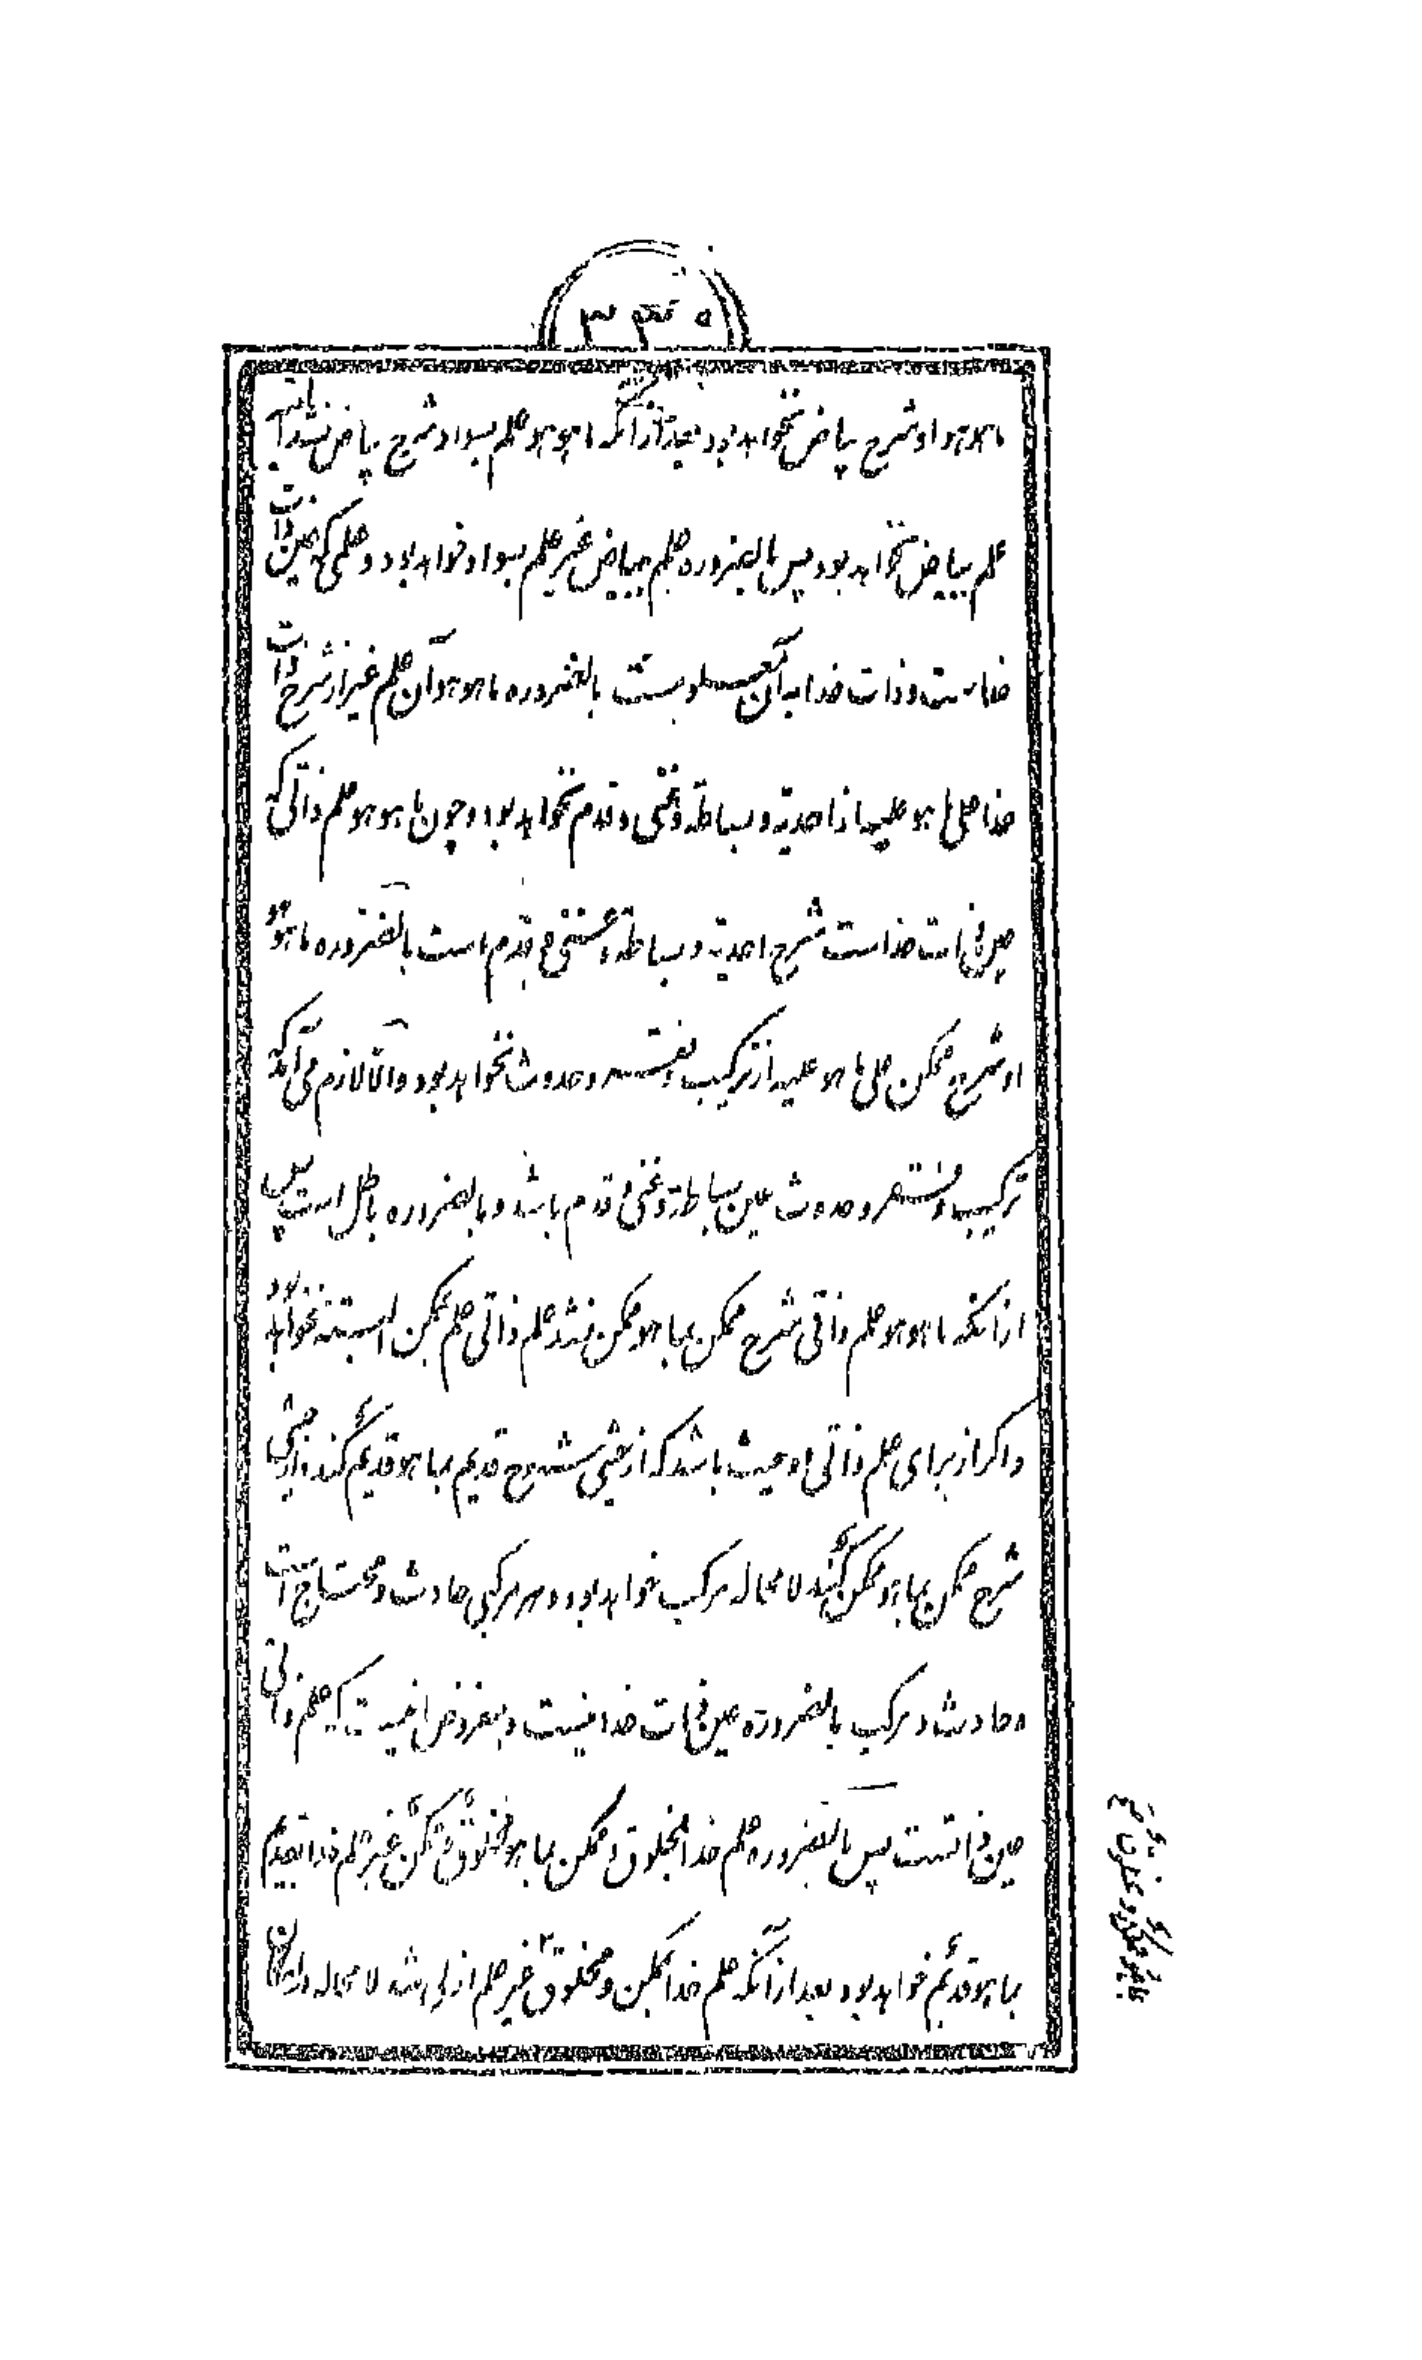 ۳۴۵
ما هو هو او شرح بیاض نخواهد بود بعد از آنکه ما هو هو علم بسواد شرح بیاض نشد البته
علم ببیاض نخواهد بود پس بالضروره علم ببیاض غیر علم بسواد خواهد بود و علمی که عین ذات
خداست و ذات خدا به آن بالضروره ما هو هو آن علم غیر از شرح ذات
خدا علی ما هو علیه از احدیة و بساطة و غنی و قدم نخواهد بود و چون ما هو هو علم ذاتی که
عین ذات خداست شرح احدیة و بساطة و غنی و قدم است بالضروره ما هو هو
او شرح ممکن علی ما هو علیه از ترکیب و فقر و حدوث نخواهد بود والّا لازم می آید که
ترکیب و فقر و حدوث عین بساطة و غنی و قدم باشد و بالضروره باطل است پس
از آنکه ما هو هو علم ذاتی شرح ممکن بما هو ممکن نشد علم ذاتی علم بممکن البته نخواهد بود
و اگر از برای علم ذاتی دو حیث باشد که از حیثی شرح قدیم بما هو قدیم کند و از حیثی
شرح ممکن بما هو ممکن کند لا محاله مرکب خواهد بود و هر مرکبی حادث و محتاج است
و حادث و مرکب بالضرورة عین ذات خدا نیست و مفروض اینست که علم ذاتی
عین ذاتست پس بالضروره علم خدا بمخلوق و ممکن بما هو مخلوق و ممکن غیر علم خدا بقدیم
بما هو قدیم خواهد بود بعد از آنکه علم خدا بممکن و مخلوق غیر علم ازلی شد لا محاله در امکان
بما هو ممکن و مخلوق صح